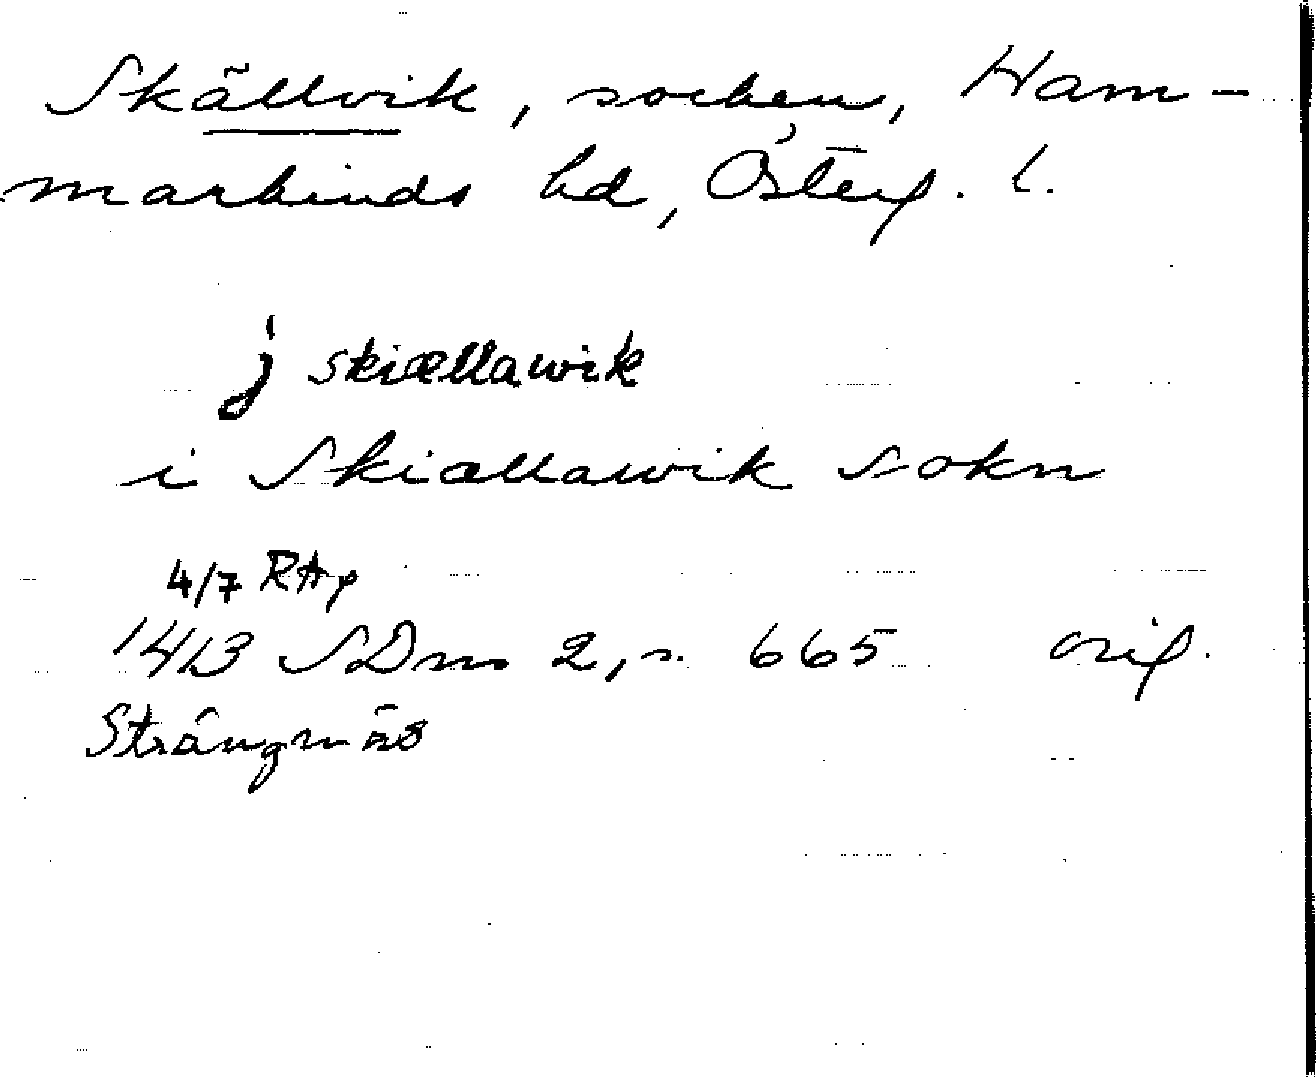 Skällvik, socken, Ham-
markinds hd, Österg. l.
j skiællawik
i Skiællawik sokn
4/7 RAp
1413 SDns 2, s. 665 orig.
Strängnäs